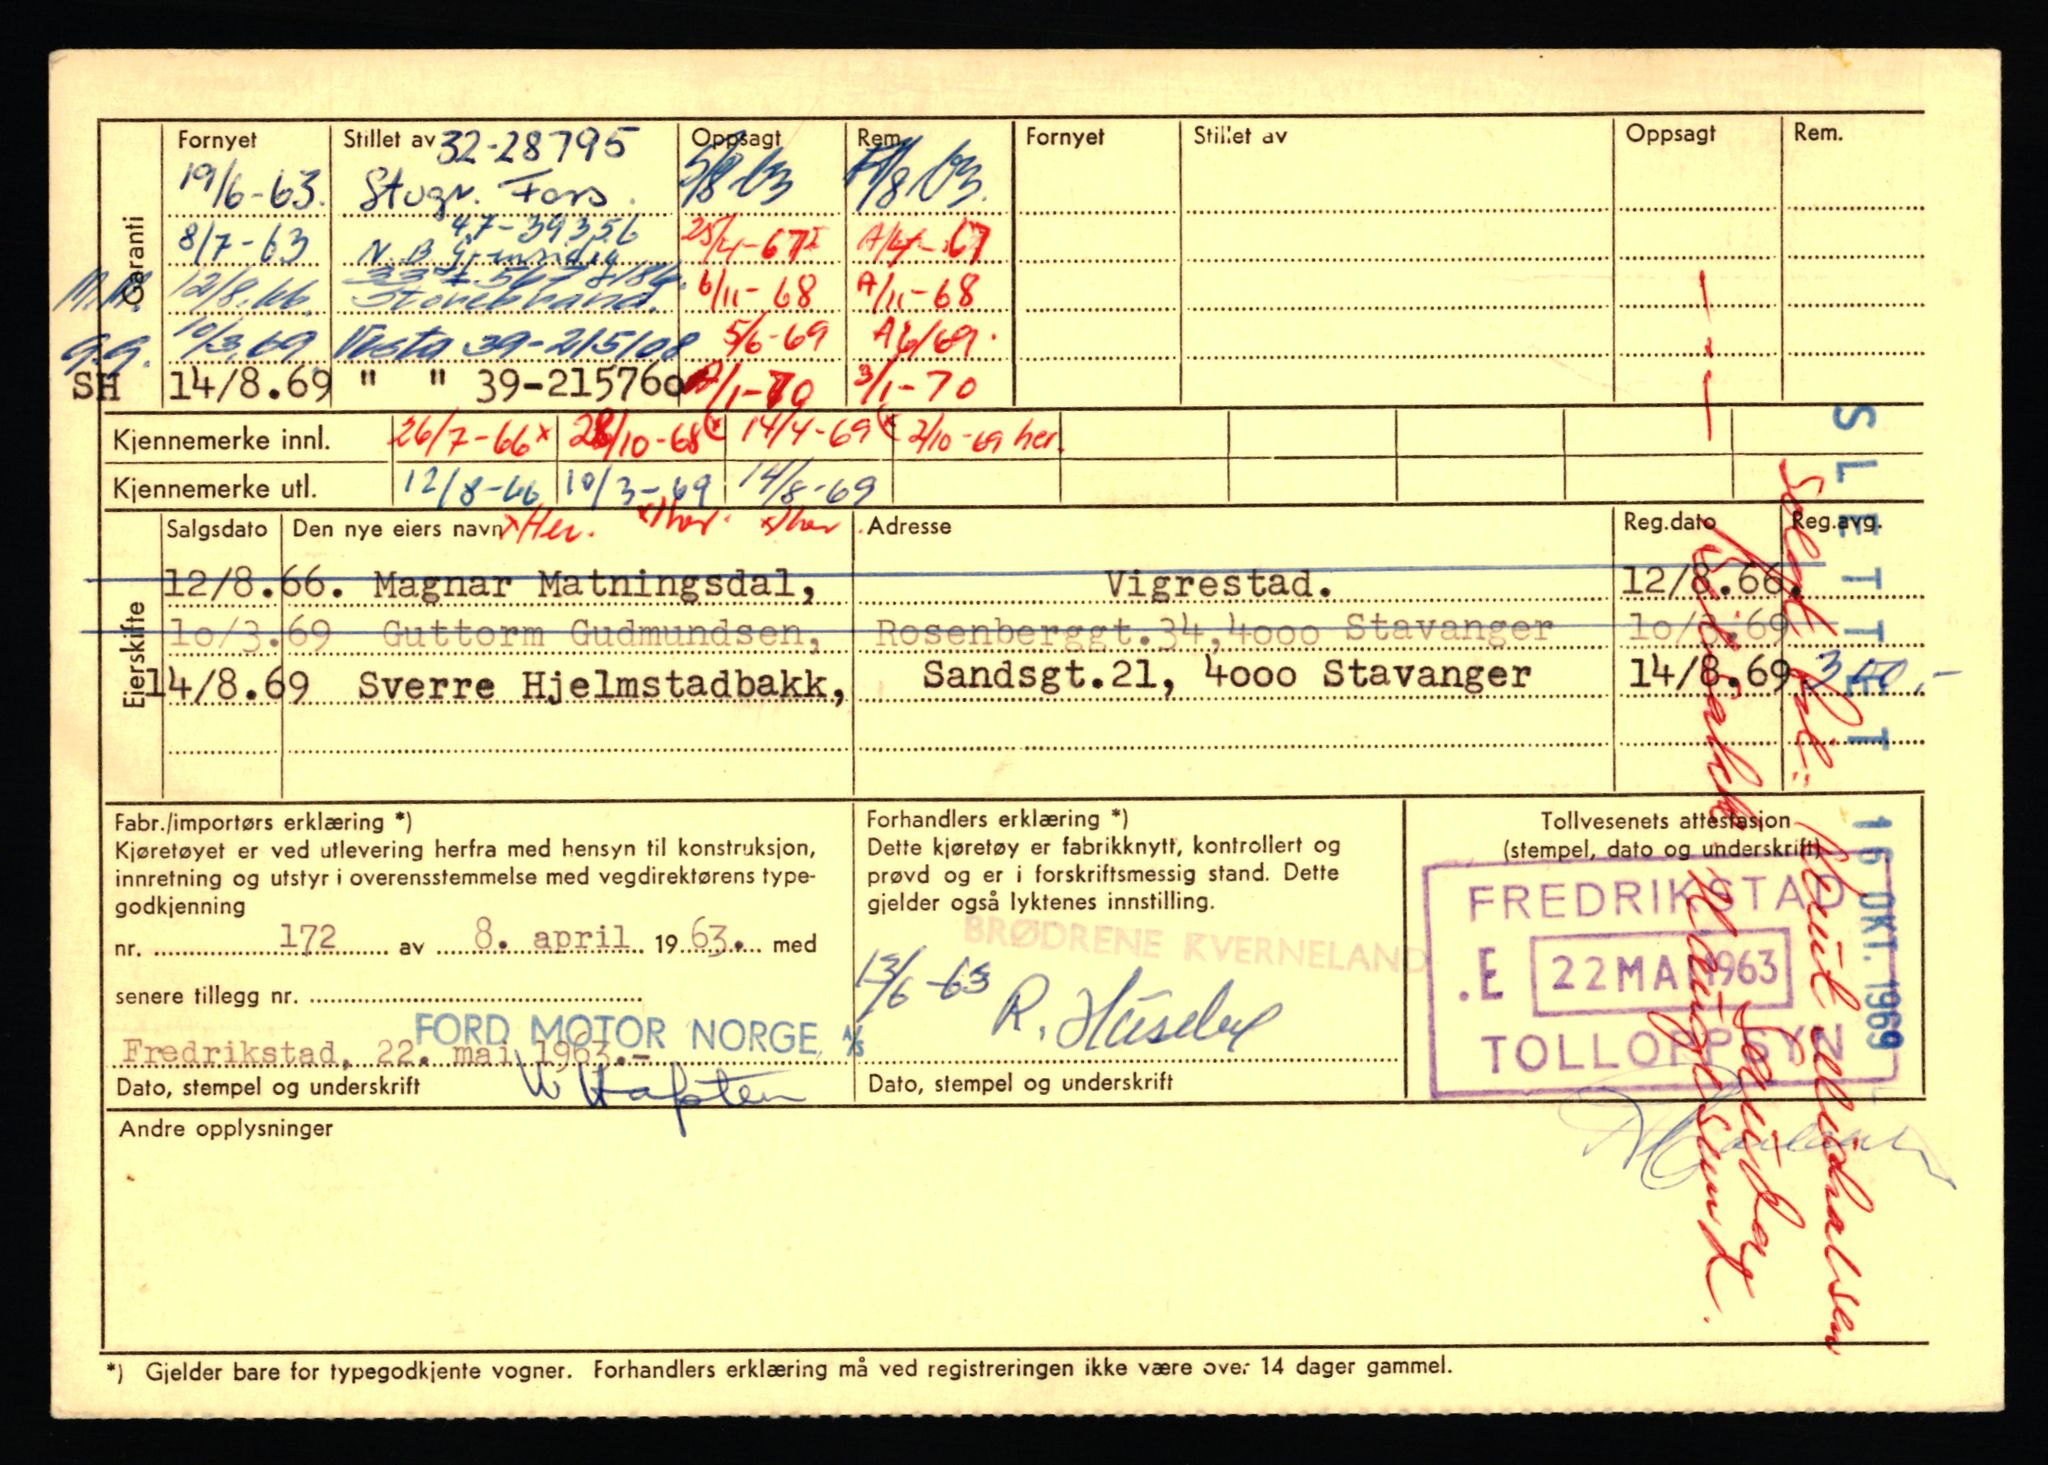 Garanti
Fornyet Stillet av Oppsagt Rem. Fornyet Stillet av Oppsagt Rem.
32-28795
19/6-63. Stvgr. Fors. 5/8 63 /8 63.
47-39356
8/7-63 N.B. 25/4-67 A/4-67
12/8.66. Storebrand. 6/11-68 A/11-68
G.G. 10/3.69 Vesta 39-215108 5/6-69 A 6/69.
SH 14/8.69 " " 39-215760 /1-70 3/1-70
Kjennemerke innl. 26/7-66 x 28/10-68 (x 14/4-69 (x 2/10-69 her.
Kjennemerke utl. 12/8-66 10/3-69 14/8-69
x Her. x her. x her.
Eierskifte
Salgsdato Den nye eiers navn Adresse Reg.dato Reg.avg.
12/8.66. Magnar Matningsdal, Vigrestad. 12/8.66.
10/3.69 Guttorm Gudmundsen, Rosenberggt.34,4000 Stavanger 10/3.69
14/8.69 Sverre Hjelmstadbakk, Sandsgt.21, 4000 Stavanger 14/8.69 300,-
SLETTET 15 OKT. 1969
Solgt til: Knut
Haugesund.
Fabr./importørs erklæring *)
Kjøretøyet er ved utlevering herfra med hensyn til konstruksjon,
innretning og utstyr i overensstemmelse med vegdirektørens type-
godkjenning
nr. 172 av 8. april 1963. med
senere tillegg nr.
FORD MOTOR NORGE A/S
Fredrikstad, 22. mai 1963.-
Dato, stempel og underskrift
Forhandlers erklæring *)
Dette kjøretøy er fabrikknytt, kontrollert og
prøvd og er i forskriftsmessig stand. Dette
gjelder også lyktenes innstilling.
BRØDRENE KVERNELAND
13/6-63 R. Húseby
Dato, stempel og underskrift
Tollvesenets attestasjon
(stempel, dato og underskrift)
FREDRIKSTAD
.E 22 MAI 1963
TOLLOPPSYN
Andre opplysninger
*) Gjelder bare for typegodkjente vogner. Forhandlers erklæring må ved registreringen ikke være over 14 dager gammel.